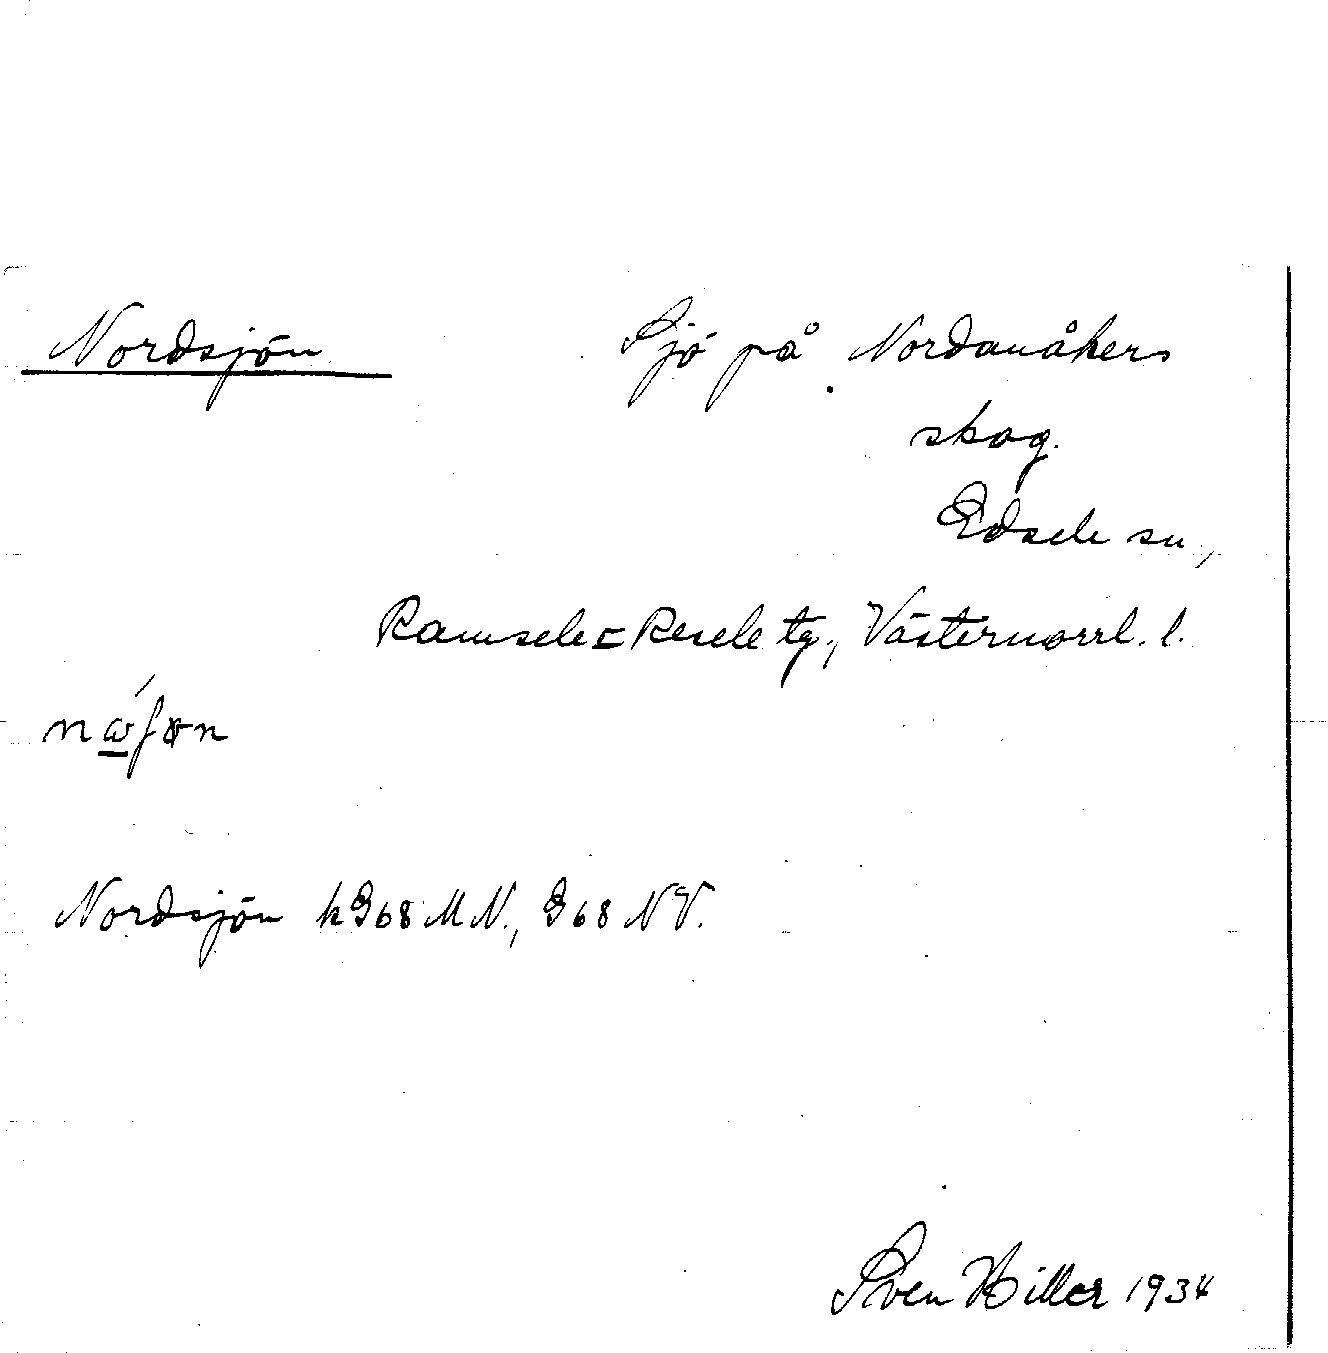 Nordsjön
Sjö på Nordanåkers
skog.
Edsele sn,
Ramsele=Resele tg., Västernorrl. l.
Nordsjön k968MN., 968NV.
Sven Hiller 1934